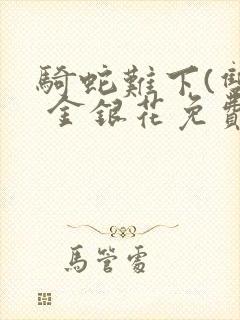 騎蛇難下(雙
金銀花免費
馬管處